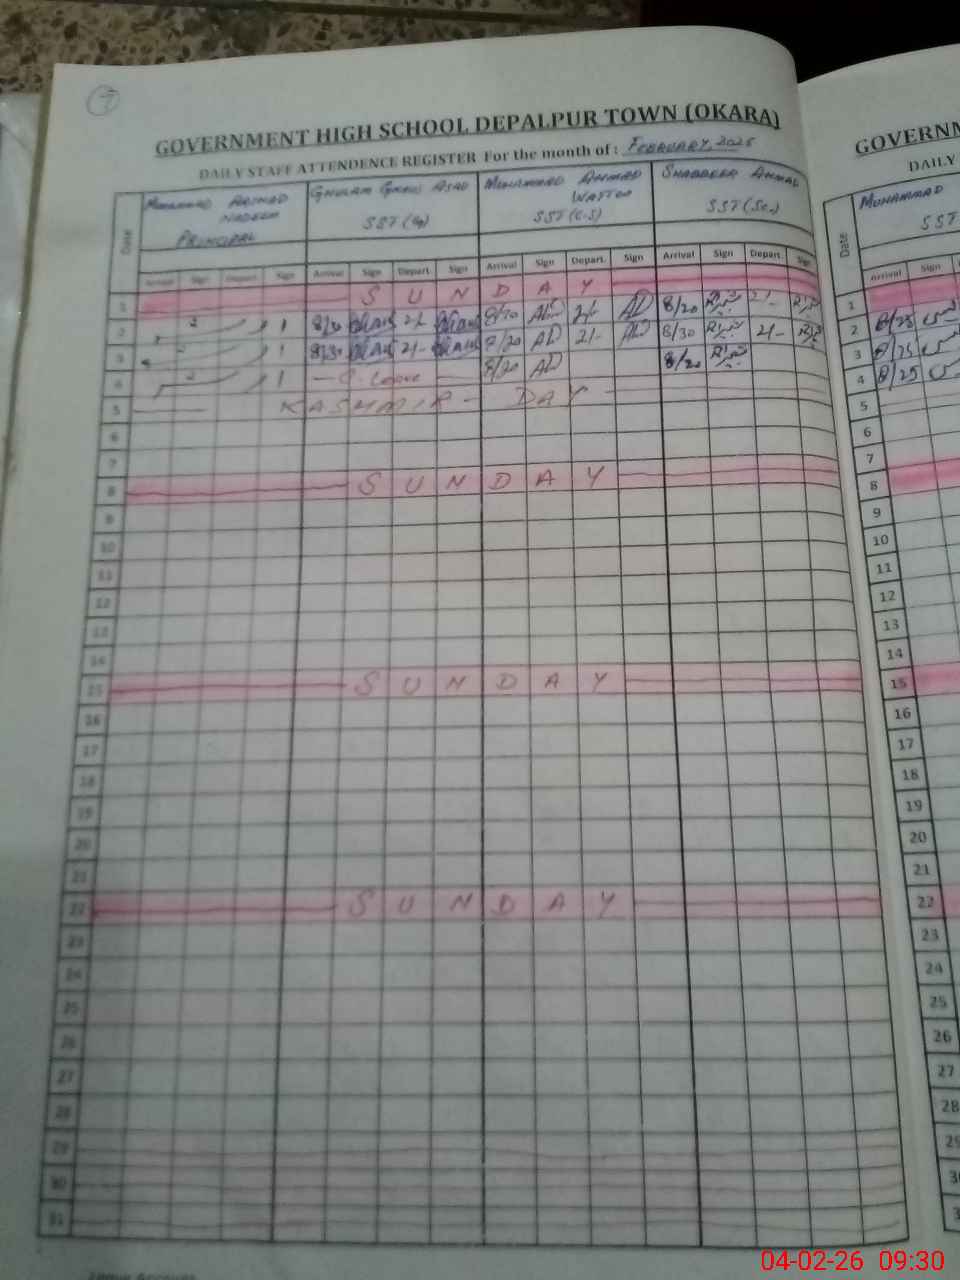 7
GOVERNMENT HIGH SCHOOL DEPALPUR TOWN (OKARA)
DAILY STAFF ATTENDENCE REGISTER For the month of : FEBRUARY, 2025
Date
MUHAMMAD ARSHAD NADEEM PRINCIPAL
GHULAM ASAD SST
MUHAMMAD AHMAD WATTOO SST (C.S)
SHABBEER AHMAD SST (Sc.)
Arrival Sign Depart. Sign Arrival Sign Depart. Sign Arrival Sign Depart. Sign Arrival Sign Depart. Sign
1 S U N D A Y
2 8/30 2/- 8/20 AD 2/- AD 8/20 2/-
3 8/30 2/- 8/20 AD 2/- AD 8/30 2/-
4 C. Leave 8/20 AD 8/20
5 KASHMIR DAY
6
7
8 S U N D A Y
9
10
11
12
13
14
15 S U N D A Y
16
17
18
19
20
21
22 S U N D A Y
23
24
25
26
27
28
29
30
31
GOVERNM
DAILY
Date
MUHAMMAD
SST
Arrival Sign
1
2 8/25
3 8/25
4 8/25
5
6
7
8
9
10
11
12
13
14
15
16
17
18
19
20
21
22
23
24
25
26
27
28
04-02-26 09:30